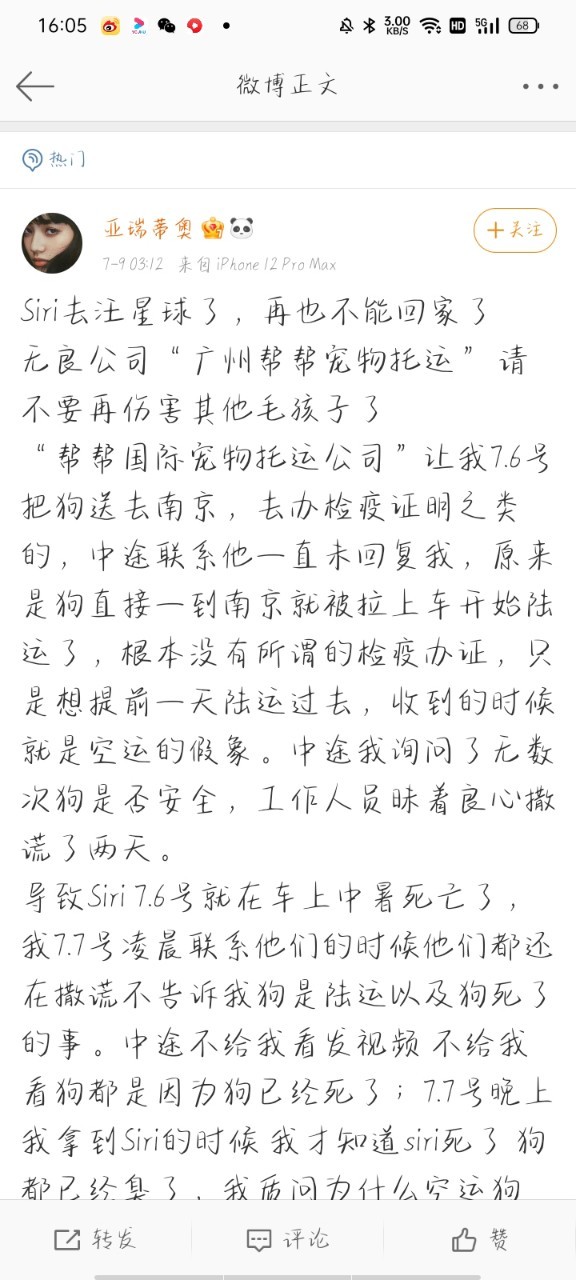 16:05
3.00
KB/S
HD
5G
68
微博正文
热门
亚瑞蒂奥
+关注
7-9 03:12 来自 iPhone 12 Pro Max
Siri去汪星球了，再也不能回家了
无良公司“广州帮帮宠物托运” 请
不要再伤害其他毛孩子了
“帮帮国际宠物托运公司”让我7.6号
把狗送去南京，去办检疫证明之类
的，中途联系他一直未回复我，原来
是狗直接一到南京就被拉上车开始陆
运了，根本没有所谓的检疫办证，只
是想提前一天陆运过去，收到的时候
就是空运的假象。中途我询问了无数
次狗是否安全，工作人员昧着良心撒
谎了两天。
导致Siri 7.6号就在车上中暑死亡了，
我7.7号凌晨联系他们的时候他们都还
在撒谎不告诉我狗是陆运以及狗死了
的事。中途不给我看发视频 不给我
看狗都是因为狗已经死了；7.7号晚上
我拿到Siri的时候 我才知道siri死了 狗
都已经臭了，我质问为什么空运狗
转发
评论
赞